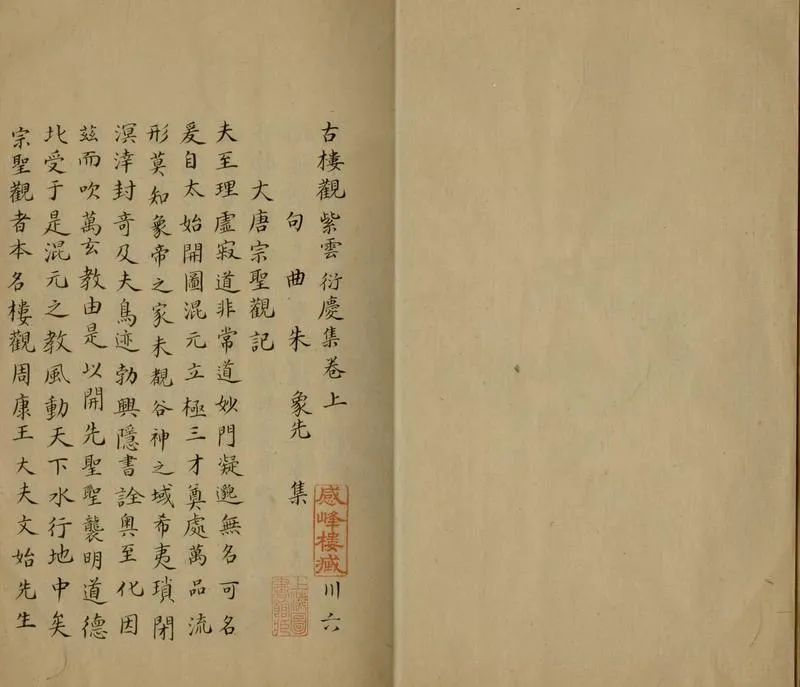 古樓觀紫雲衍慶集卷上 川六
感峰樓藏
句曲朱象先集
上海圖書館藏
大唐宗聖觀記
夫至理虛寂道非常道妙門凝邈無名可名
爰自太始開圖混元立極三才奠處萬品流
形莫知象帝之家未覩谷神之域希夷瑣閉
溟涬封奇及夫鳥迹勃興隱書詮奧至化因
茲而吹萬玄教由是以開先聖聖襲明道德
北受于是混元之教風動天下水行地中矣
宗聖觀者本名樓觀周康王大夫文始先生